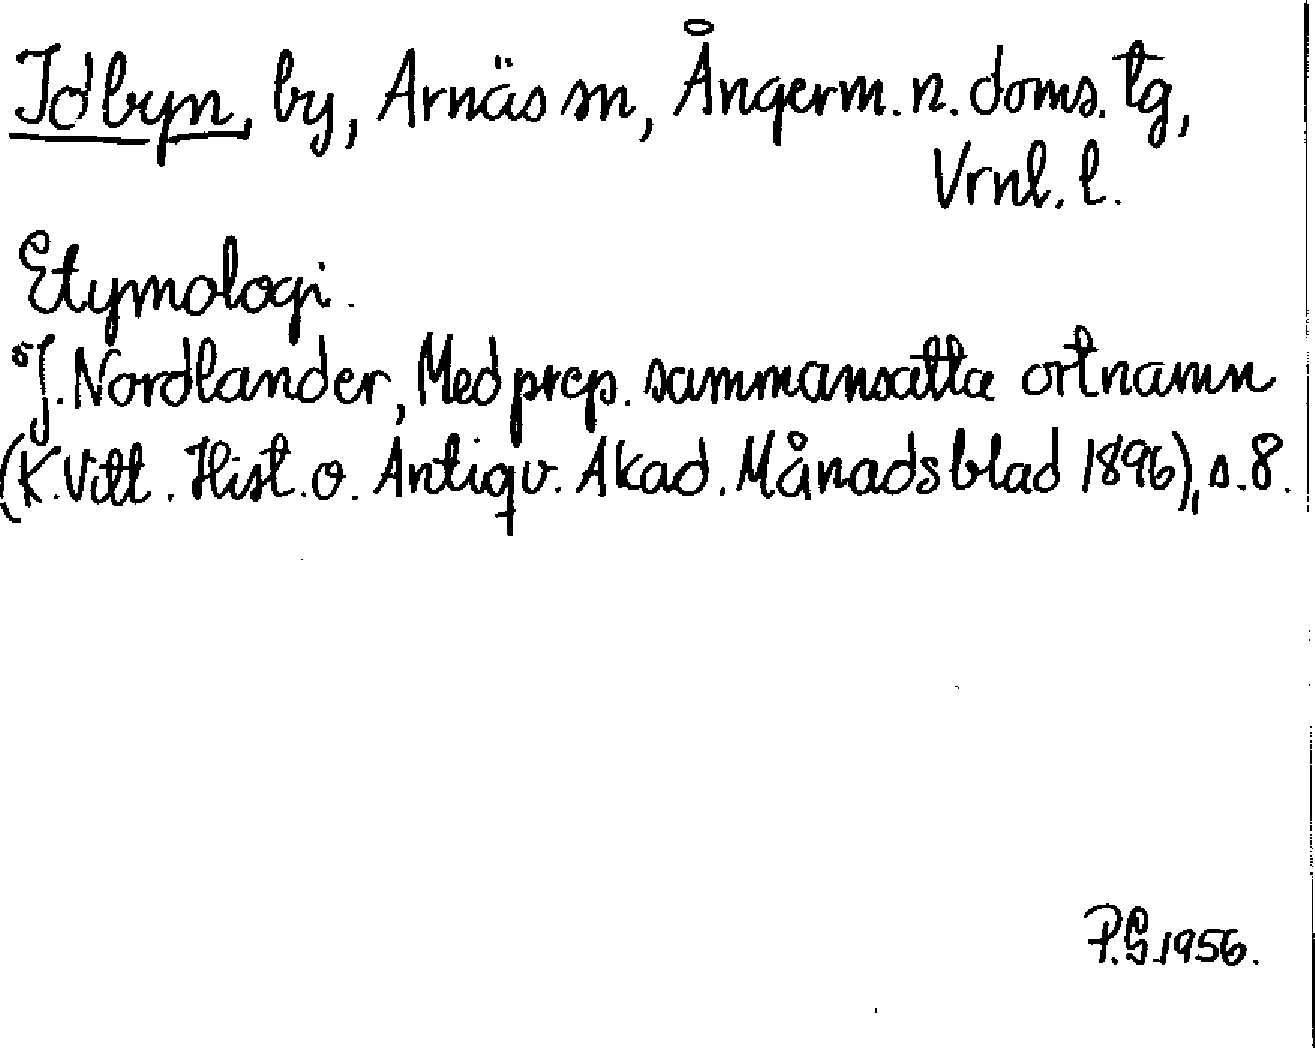 Idbyn, by, Arnäs sn, Ångerm. n. doms. tg,
Vrnl. l.
Etymologi.
J. Nordlander, Med prep. sammansatta ortnamn
(K. Vitt. Hist. o. Antiqv. Akad. Månadsblad 1896), s. 8.
P.G 1956.